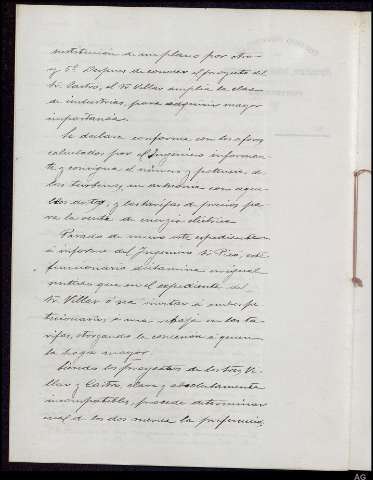 sustitución de un plano por otro
y 5º Despues de conocer el proyecto del
Sr. Castro, el Sr Villar amplia la clase
de industrias, para adquirir mayor
importancia.
Se declara conforme con los aforos
calculados por el Ingeniero informan-
te y consigna el número y potencia de
las turbinas, en armonia con aque-
llos datos, y las tarifas de precios pa-
ra la venta de energia eléctrica
Pasado de nuevo este expediente
á informe del Ingeniero Sr Pico, este
funcionario dictamina en igual
sentido que en el expediente del
Sr. Villar ó sea invitar á ambos pe-
ticionarios á una rebaja en las ta-
rifas, otorgando la concesión á quien
la haga mayor.
Siendo los proyectos de los Sres Vi-
llar y Castro, clara y absolutamente
incompatibles, procede determinar
cual de los dos merece la preferencia,
AG